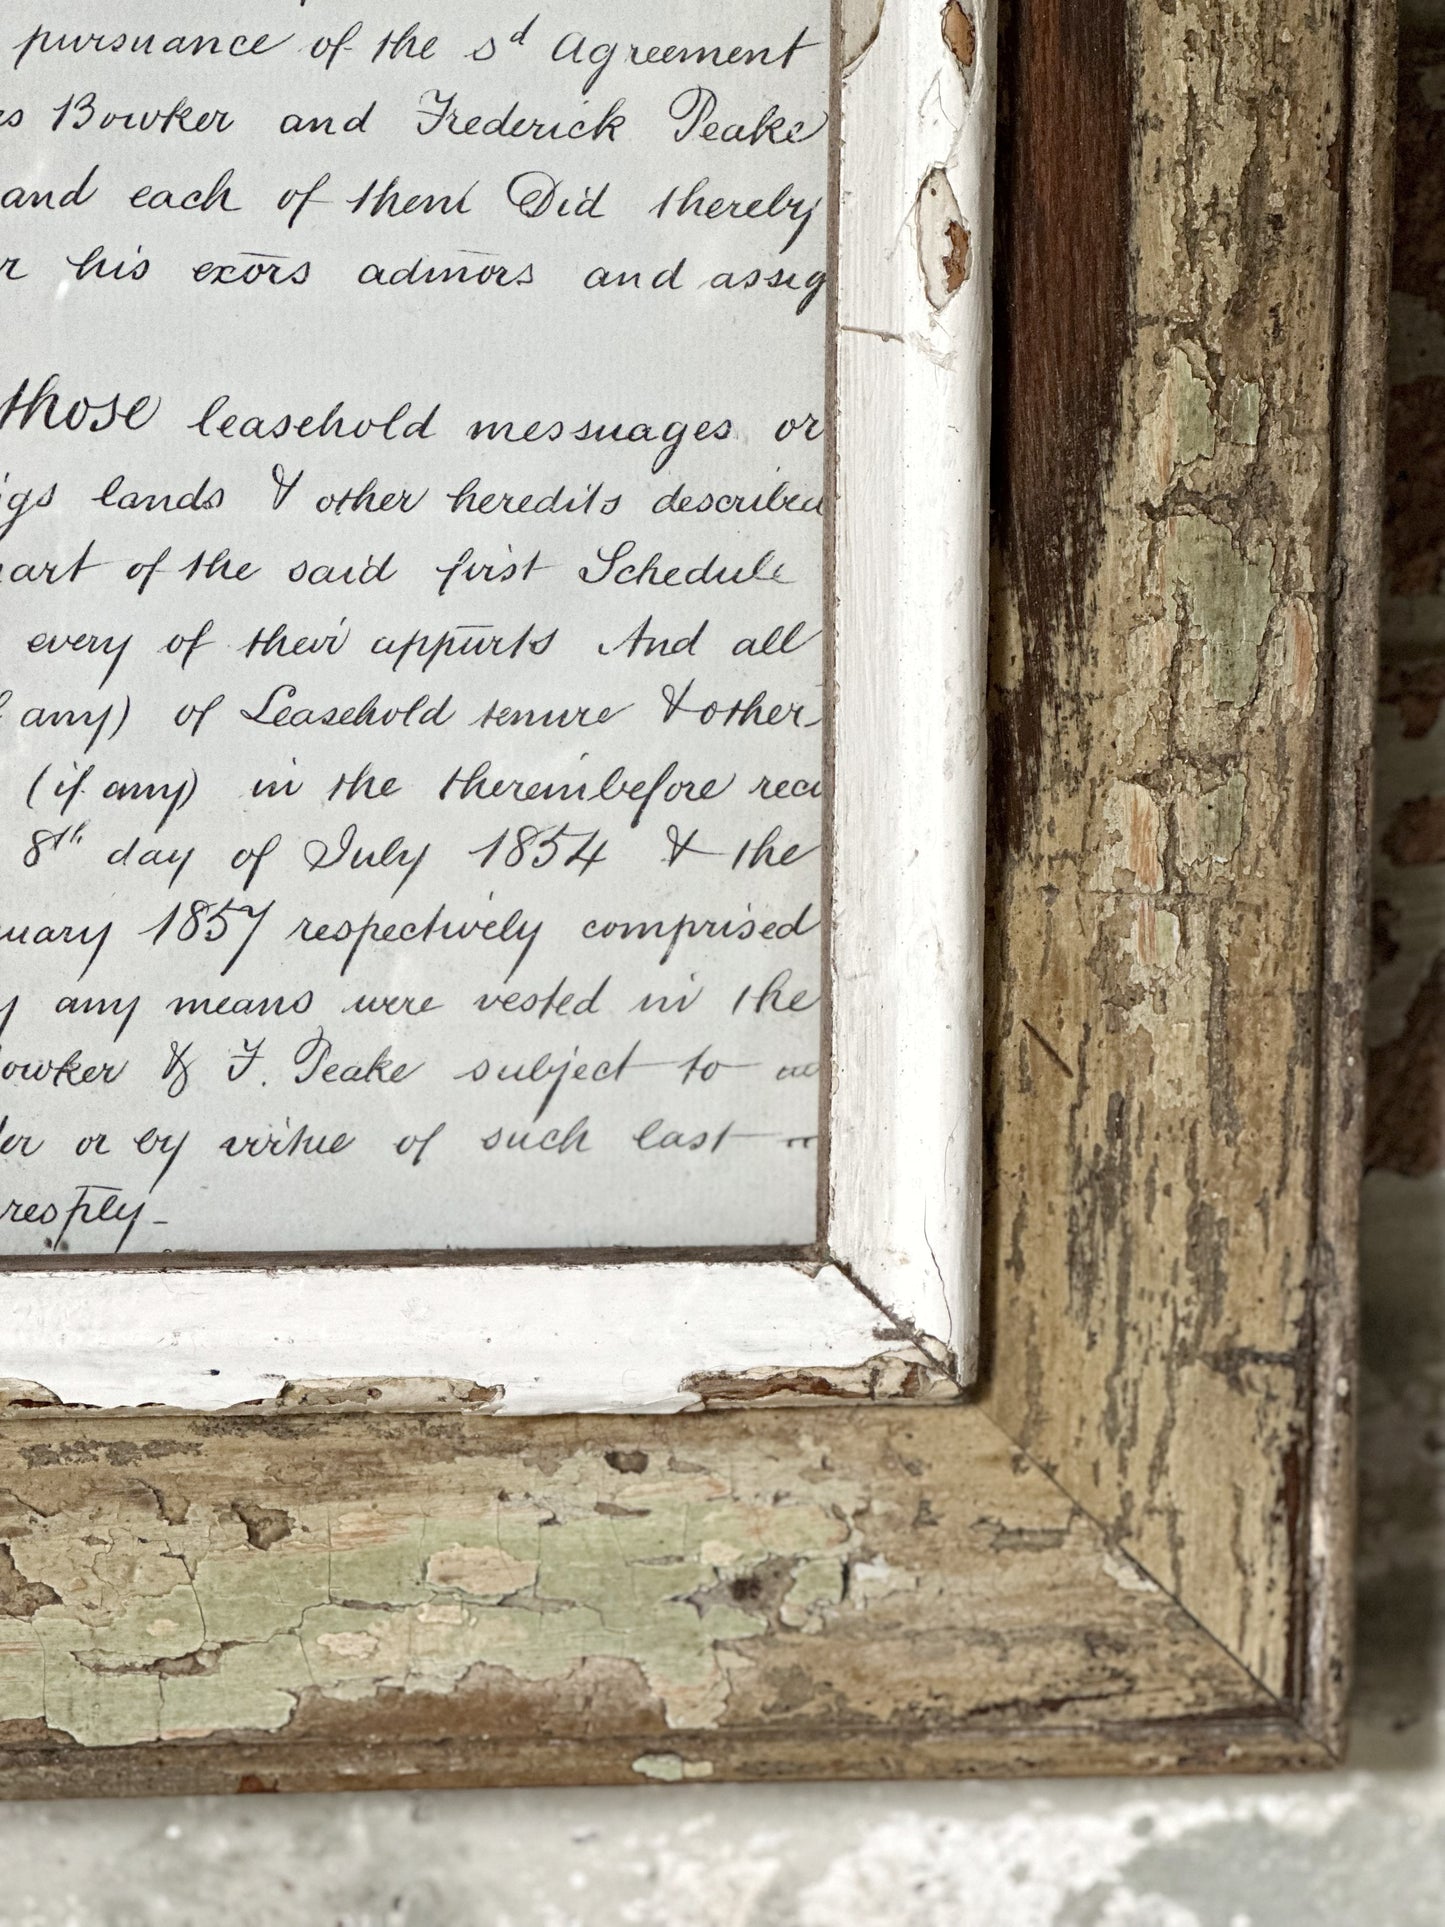 pursuance of the sd Agreement
Bowker and Frederick Peake
and each of them Did thereby
his exōrs admōrs and assig
those leasehold messuages or
lands & other heredits described
of the said first Schedule
every of their appūrts And all
any) of Leasehold tenure & other
(if any) in the thereinbefore reci
8th day of July 1854 & the
uary 1857 respectively comprised
any means were vested in the
owker & F. Peake subject to
or by virtue of such last
resp̄ly